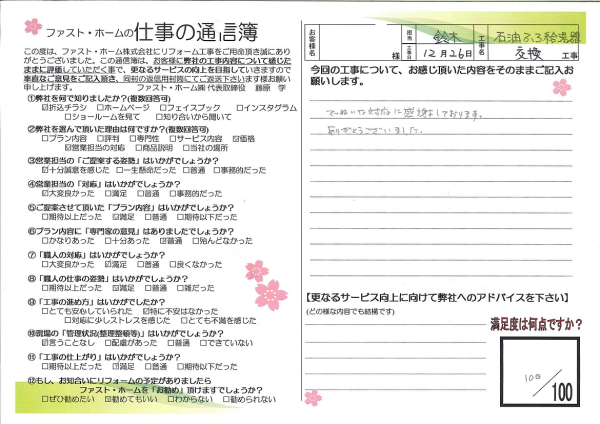 ファスト・ホームの仕事の通信簿
この度は、ファスト・ホーム株式会社にリフォーム工事をご用命頂き誠にあり
がとうございました。この通信簿は、お客様に弊社の工事内容について感じた
ままに評価していただく事で、更なるサービスの向上を目指していきますので
率直なご意見をご記入頂き、同封の返信用封筒にてご返送下さいます様お願い
申し上げます。 ファスト・ホーム㈱ 代表取締役 藤原 学
①弊社を何で知りましたか?(複数回答可)
☑折込チラシ □ホームページ □フェイスブック □インスタグラム
□ショールームを見て □知り合いから聞いて
②弊社を選んで頂いた理由は何ですか?(複数回答可)
□プラン内容 □評判 □専門性 □サービス内容 ☑価格
☑営業担当の対応 □商品説明 □当社の場所
③営業担当の「ご提案する姿勢」はいかがでしょうか?
☑十分誠意を感じた □一生懸命だった □普通 □事務的だった
④営業担当の「対応」はいかがでしょうか?
☑大変良かった □満足 □普通 □事務的だった
⑤ご提案させて頂いた「プラン内容」はいかがでしょうか?
□期待以上だった ☑満足 □普通 □期待以下だった
⑥プラン内容に「専門家の意見」はありましたでしょうか?
□かなりあった □十分あった ☑普通 □殆んどなかった
⑦「職人の対応」はいかがでしょうか?
□大変良かった ☑満足 □普通 □良くなかった
⑧「職人の仕事の姿勢」はいかがでしたか?
□期待以上だった ☑満足 □普通 □雑だった
⑨「工事の進め方」はいかがでしたか?
□とても安心していられた ☑特に不安はなかった
□対応に少しストレスを感じた □とても不満を感じた
⑩現場の「管理状況(整理整頓等)」はいかがでしたか?
☑言うことなし □配慮があった □普通 □できていない
⑪「工事の仕上がり」はいかがでしたか?
□期待以上だった ☑満足 □普通 □期待以下だった
⑫もし、お知合いにリフォームの予定がありましたら
ファスト・ホームを「お勧め」頂けますでしょうか?
□ぜひ勧めたい ☑勧めてもいい □わからない □勧められない
お客様名 様 担当 鈴木 工事日 12月26日 工事名 石油ふろ給湯器 交換 工事
今回の工事について、お感じ頂いた内容をそのままご記入お
願いします。
ていねいな対応に感謝しております。
ありがとうございました。
【更なるサービス向上に向けて弊社へのアドバイスを下さい】
(どの様な内容でも結構です)
満足度は何点ですか?
100
/100